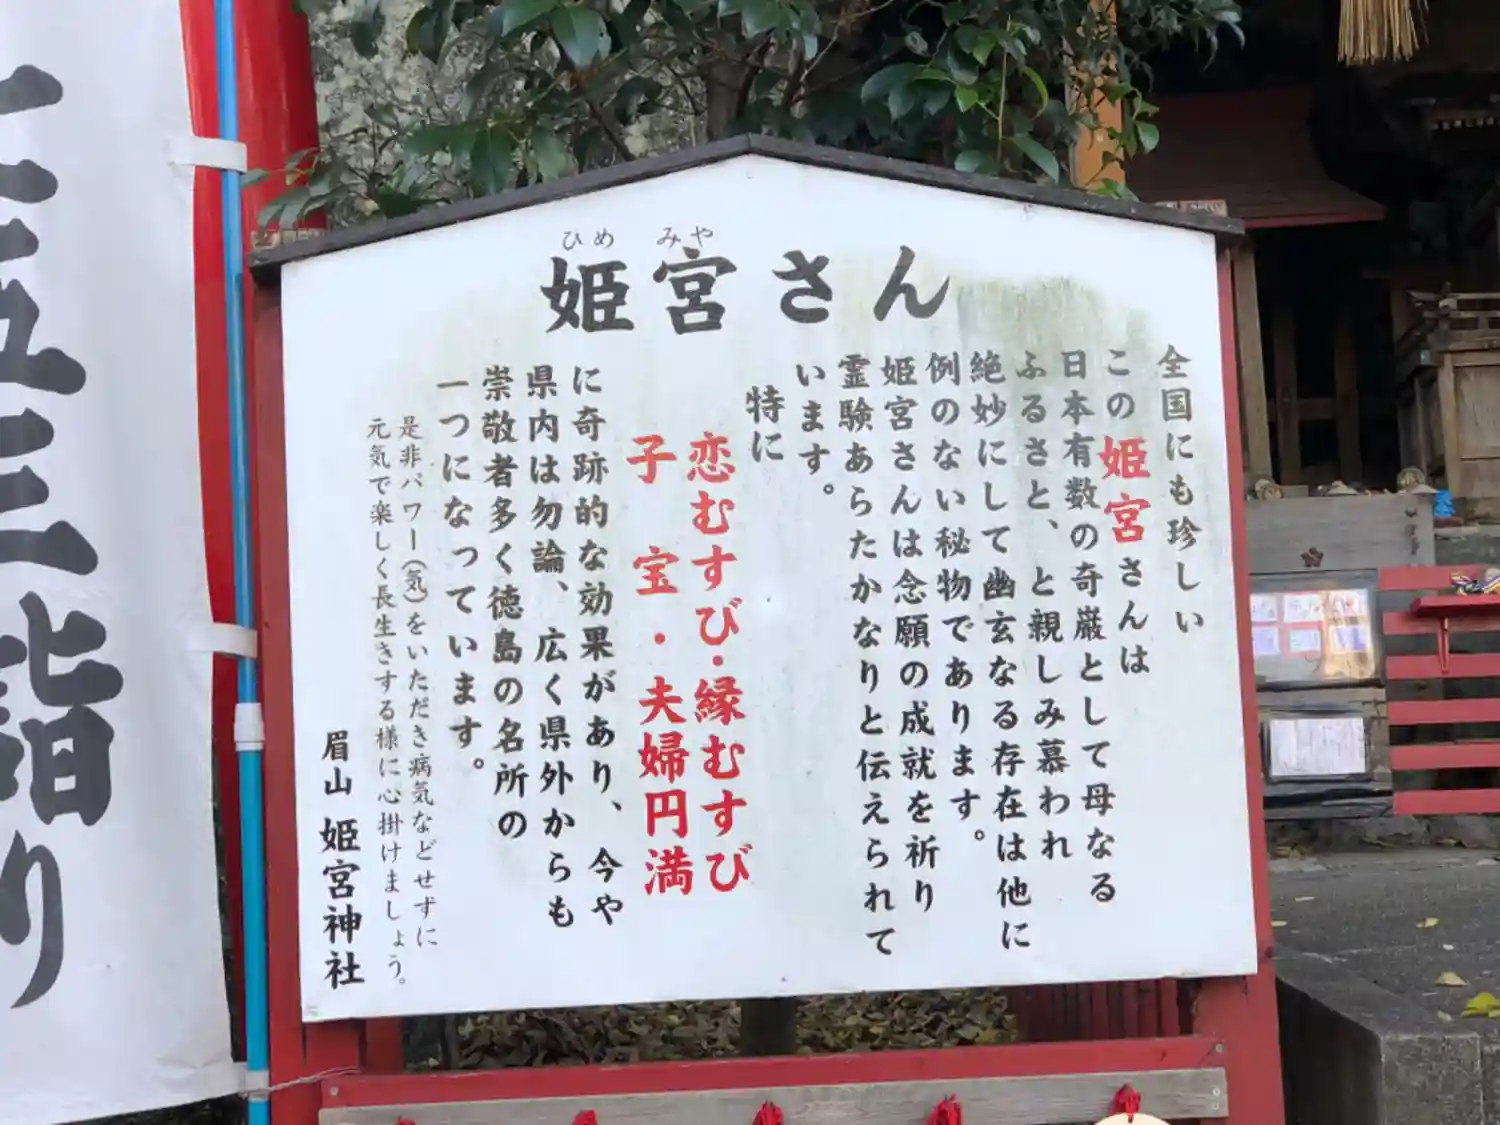 ひめ みや
姫宮さん
全国にも珍しい
この姫宮さんは
日本有数の奇巌として母なる
ふるさと、と親しみ慕われ
絶妙にして幽玄なる存在は他に
例のない秘物であります。
姫宮さんは念願の成就を祈り
霊験あらたかなりと伝えられて
います。
特に
恋むすび・縁むすび
子宝・夫婦円満
に奇跡的な効果があり、今や
県内は勿論、広く県外からも
崇敬者多く徳島の名所の
一つになっています。
是非パワー(気)をいただき病気などせずに
元気で楽しく長生きする様に心掛けましょう。
眉山 姫宮神社
五三詣り